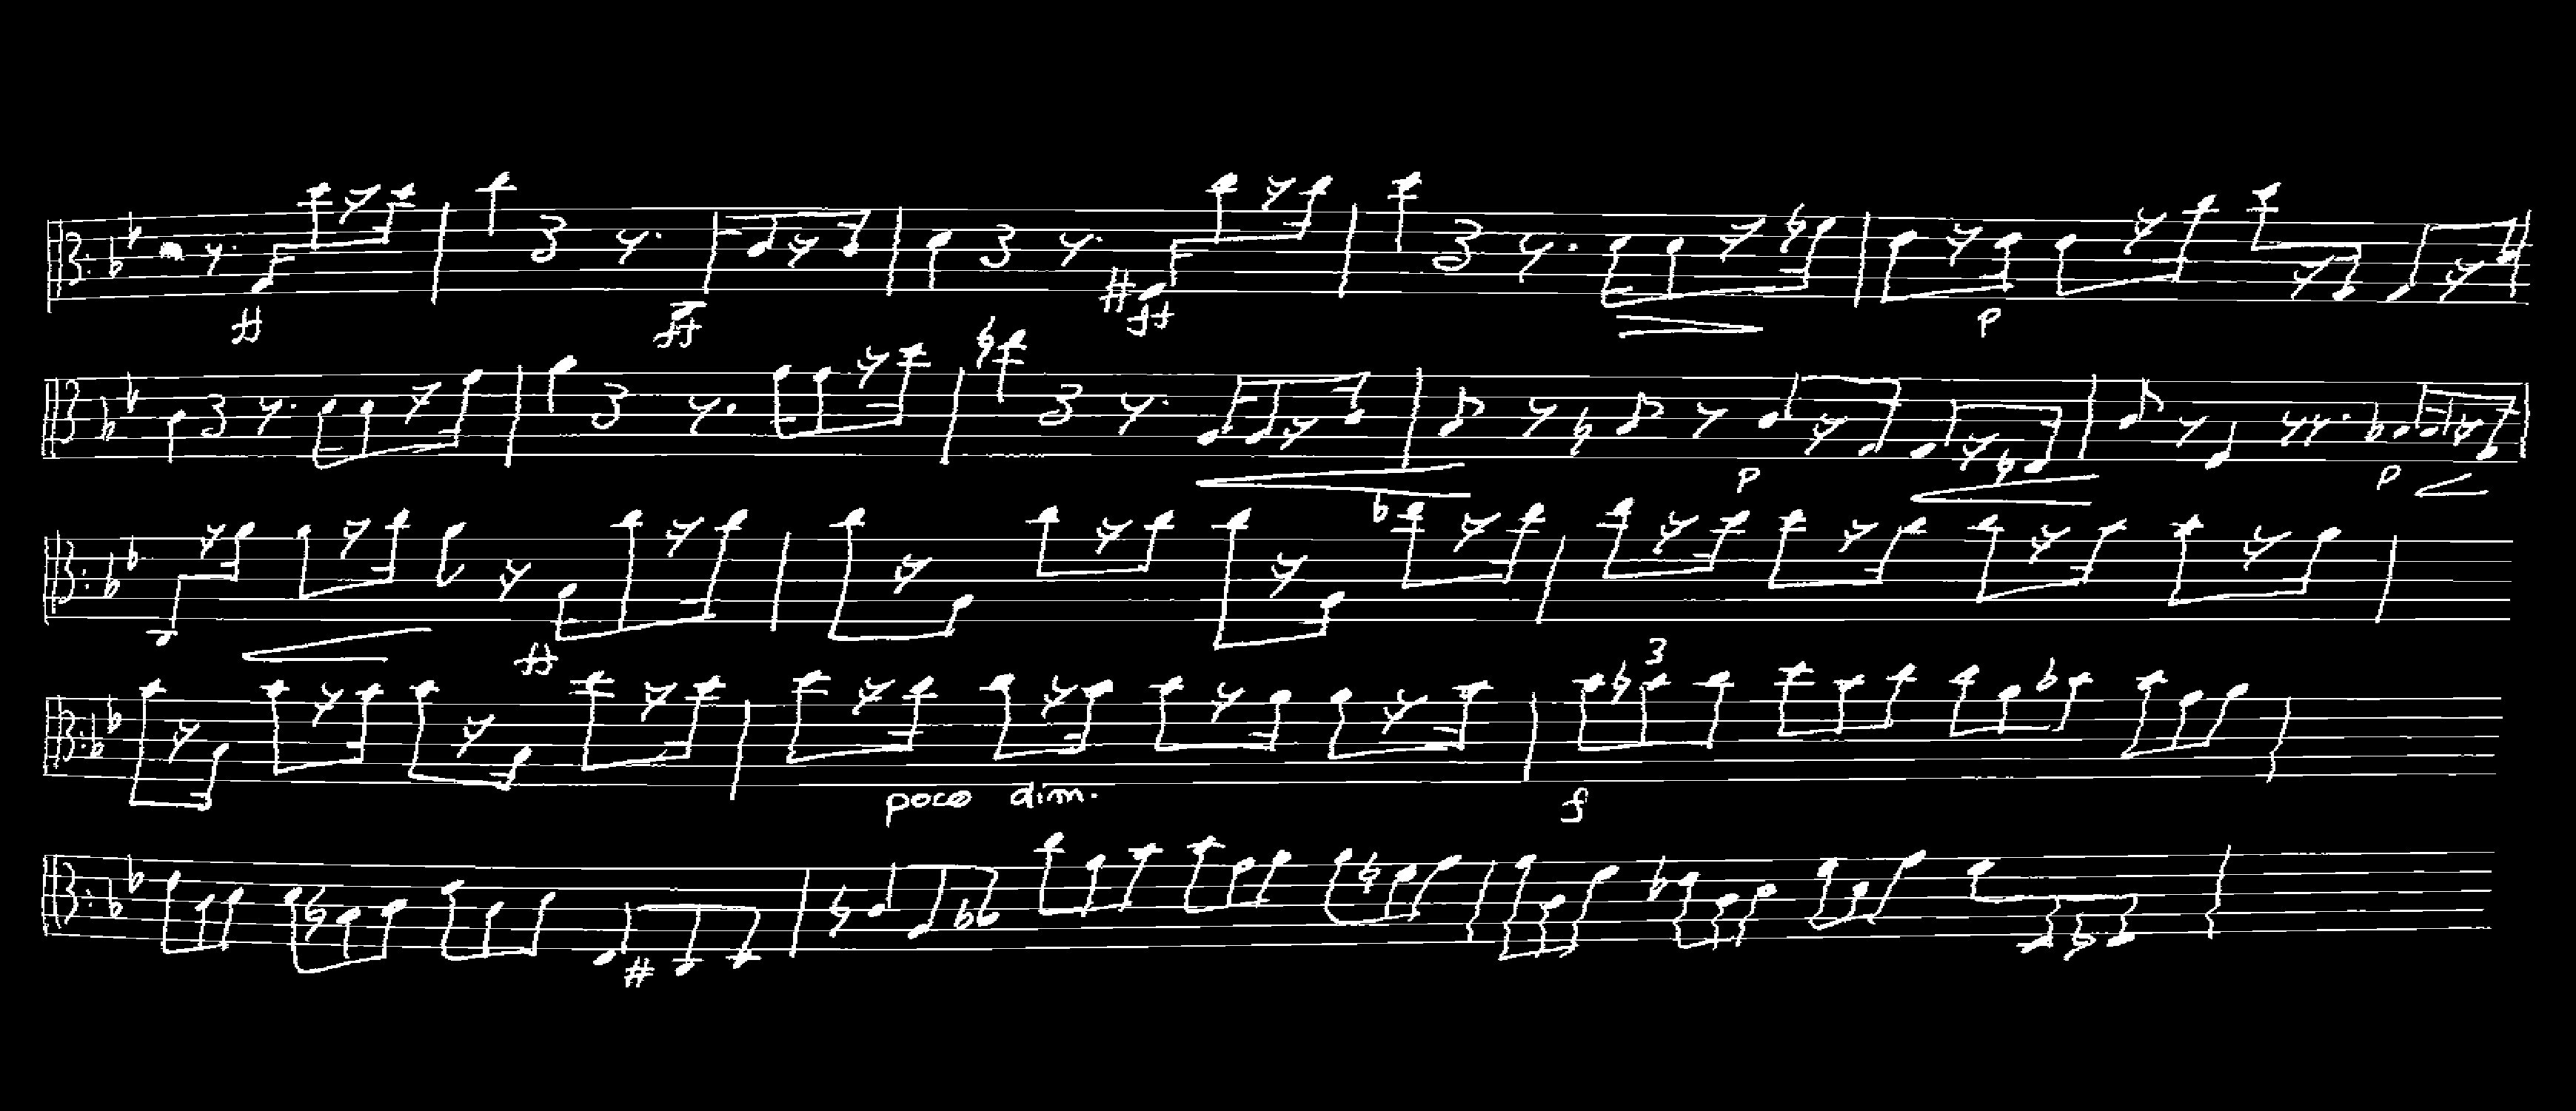 ff ff ff
p
p p
ff
3
poco dim. f